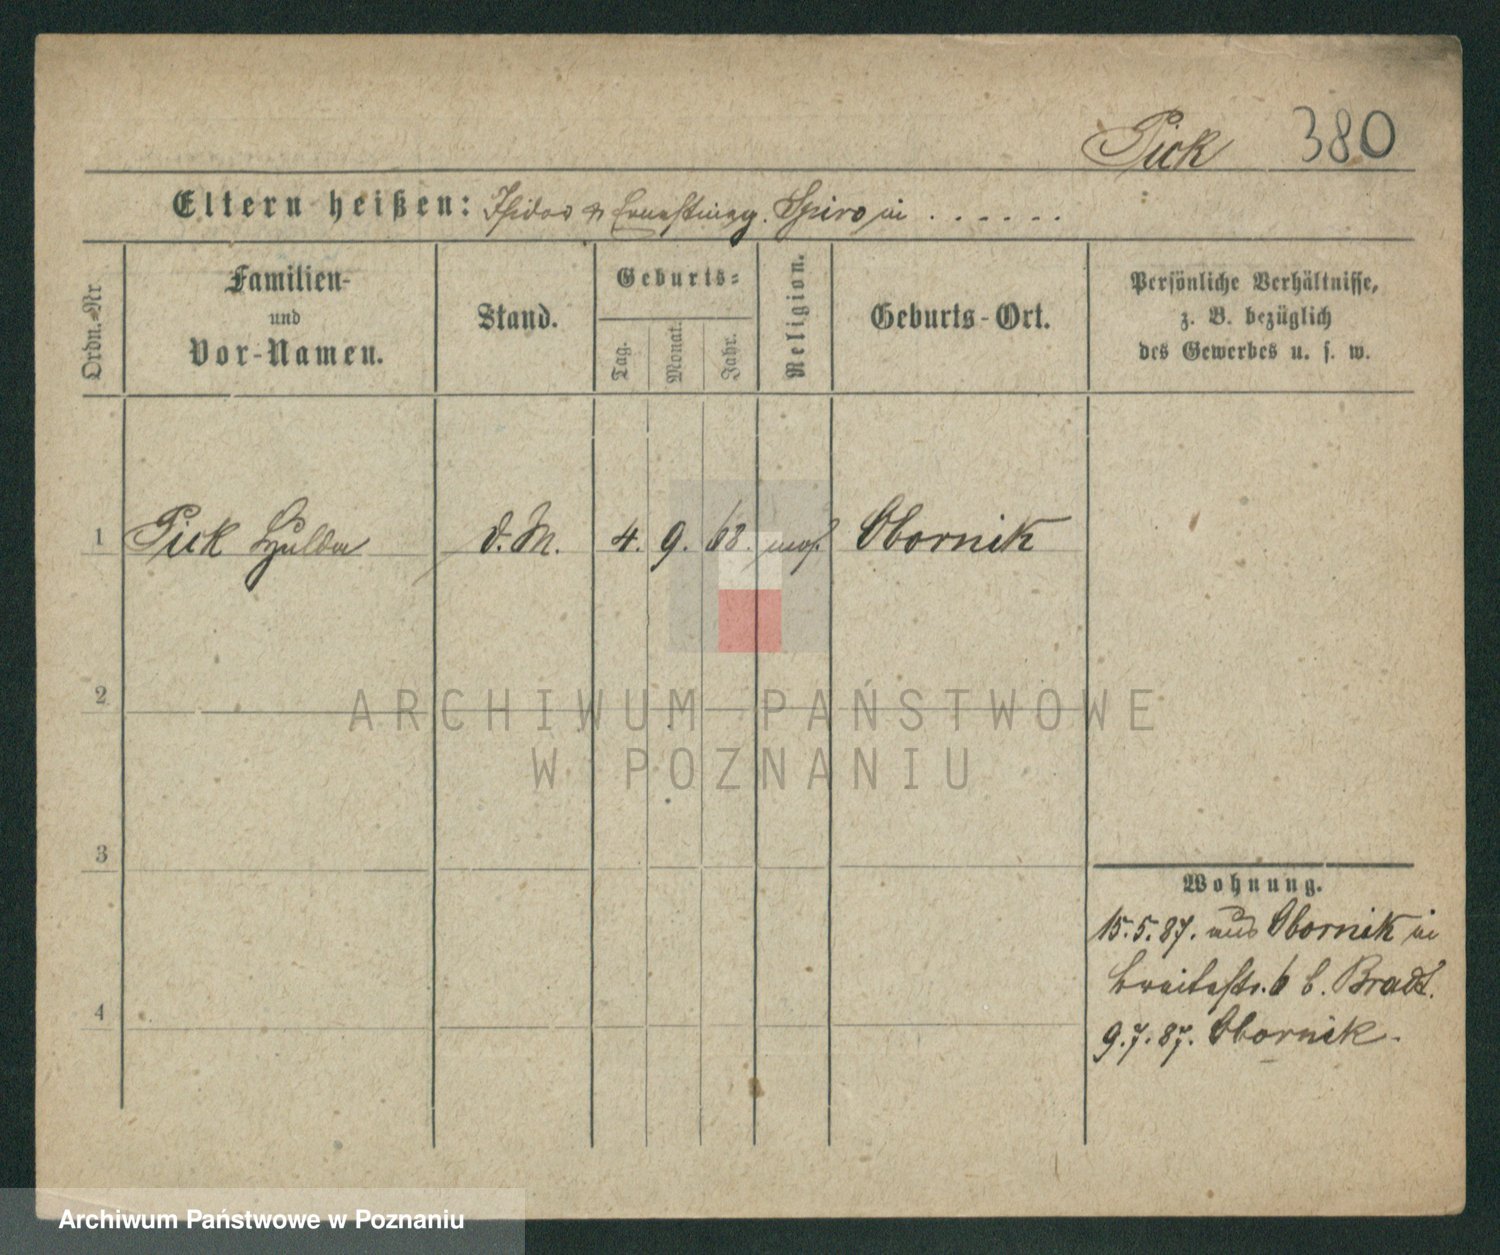 Pick 380
Eltern heißen: Isidor & Ernestine g. Spiro in . . . . . .
Ordn.-Nr
Familien-
und
Vor-Namen.
Stand.
Geburts-
Tag.
Monat.
Jahr.
Religion.
Geburts-Ort.
Persönliche Verhältnisse,
z. B. bezüglich
des Gewerbes u. s. w.
1 Pick Hulda d. M. 4. 9. 68. mos. Obornik
2
ARCHIWUM PAŃSTWOWE
W POZNANIU
3
Wohnung.
15.5.87. aus Obornik in
Breitestr. 6 b. Bradt.
4
9.7.87. Obornik.
Archiwum Państwowe w Poznaniu